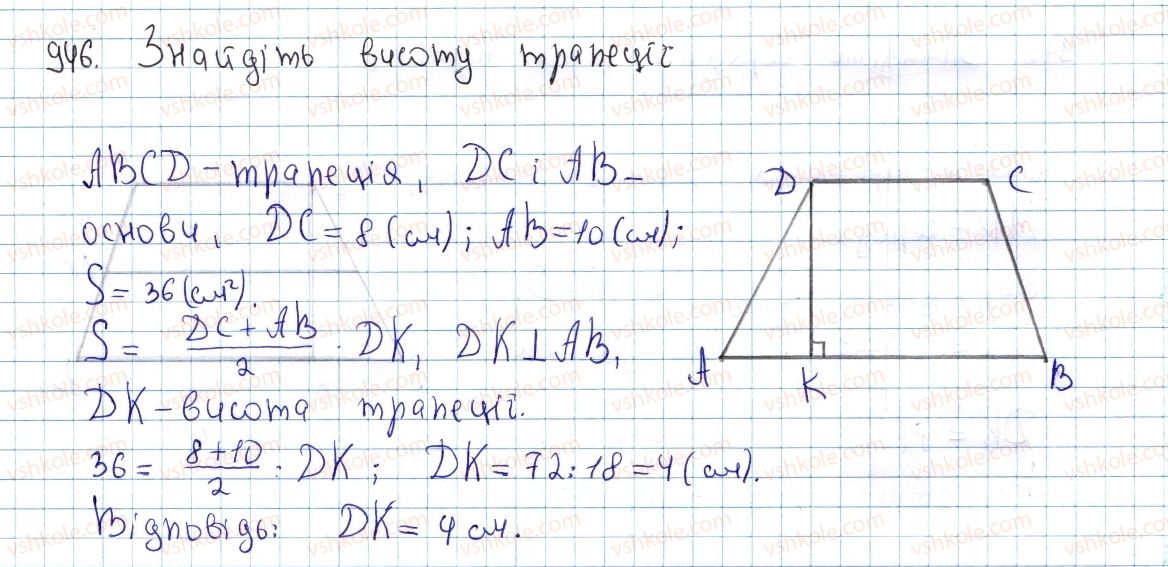 946. Знайдіть висоту трапеції
ABCD – трапеція, DC і AB –
основи, DC = 8 (см); AB = 10 (см);
S = 36 (см²).
S = (DC + AB)/2 · DK, DK ⊥ AB,
DK – висота трапеції.
36 = (8+10)/2 · DK; DK = 72 : 18 = 4 (см).
Відповідь: DK = 4 см.
D C
A K B
vshkole.com